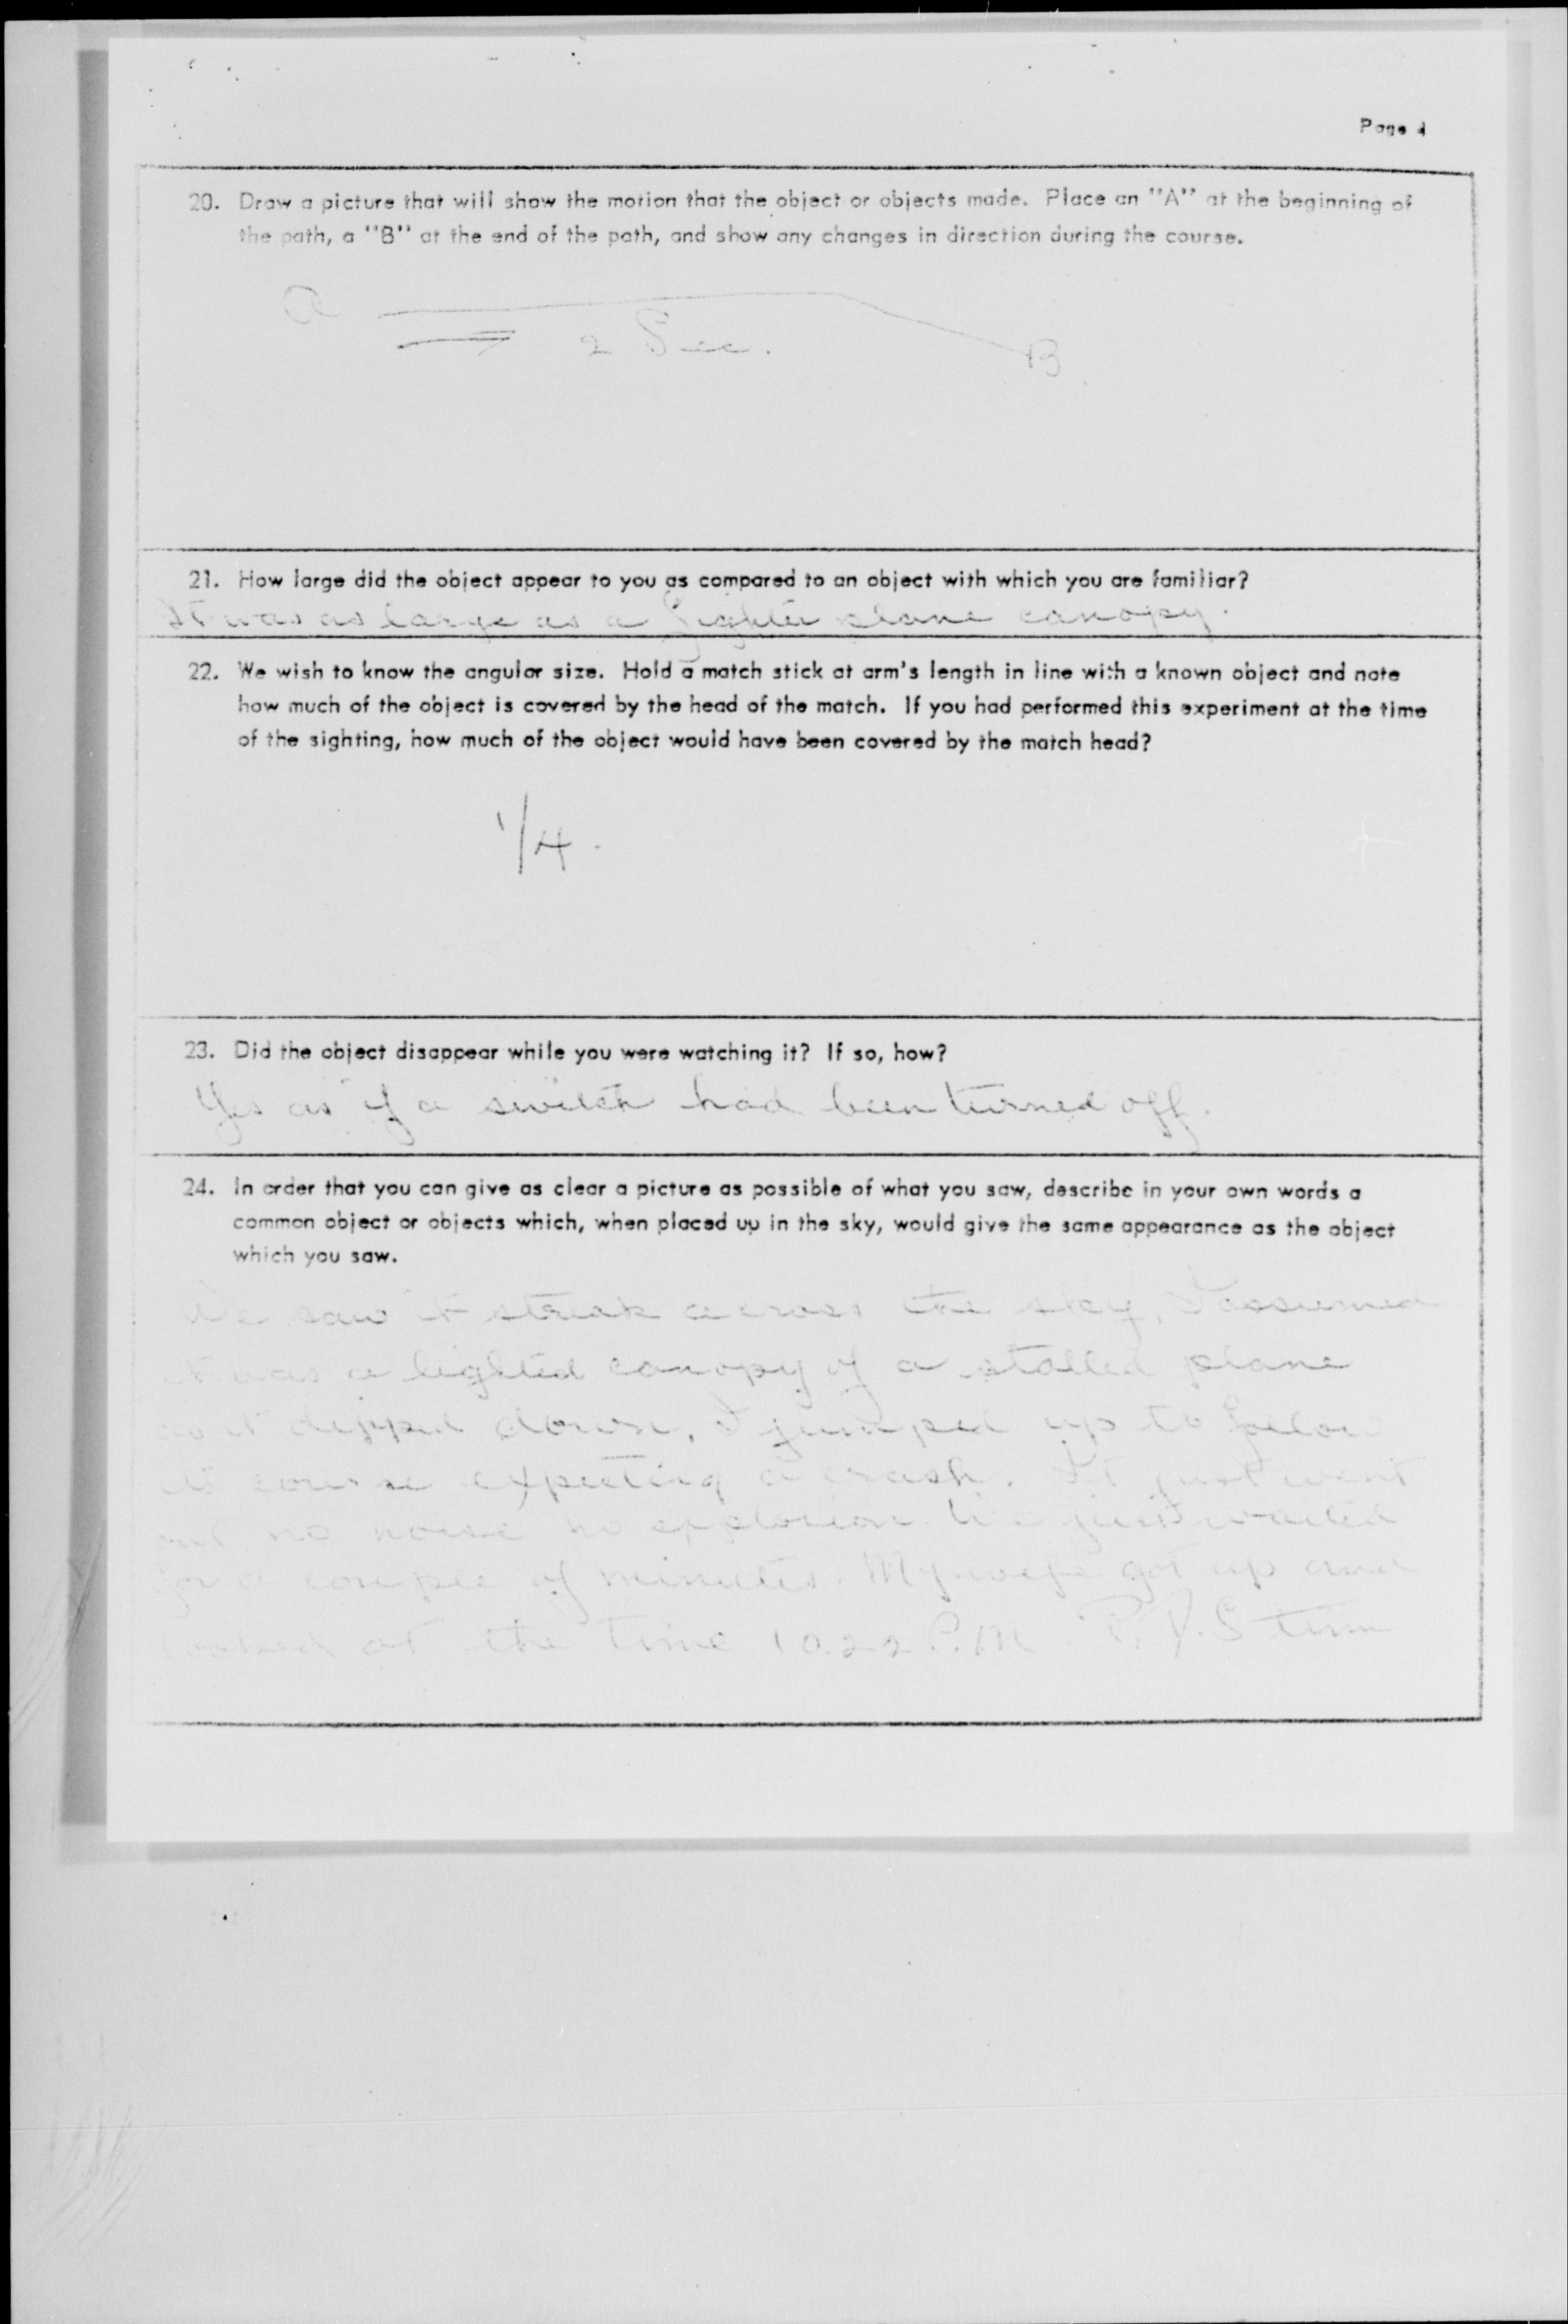 Page 4
20. Draw a picture that will show the motion that the object or objects made. Place an "A" at the beginning of
the path, a "B" at the end of the path, and show any changes in direction during the course.
a
2 Sec.
B
21. How large did the object appear to you as compared to an object with which you are familiar?
It was as large as a fighter plane canopy.
22. We wish to know the angular size. Hold a match stick at arm's length in line with a known object and note
how much of the object is covered by the head of the match. If you had performed this experiment at the time
of the sighting, how much of the object would have been covered by the match head?
1/4.
23. Did the object disappear while you were watching it? If so, how?
Yes as if a switch had been turned off.
24. In order that you can give as clear a picture as possible of what you saw, describe in your own words a
common object or objects which, when placed up in the sky, would give the same appearance as the object
which you saw.
We saw it streak across the sky, I assumed
it was a lighted canopy of a stalled plane
as it dipped down, I jumped up to follow
its course expecting a crash. It just went
out no noise no explosion. We just waited
for a couple of minutes. My wife got up and
looked at the time 10.22 P.M P.D.S time